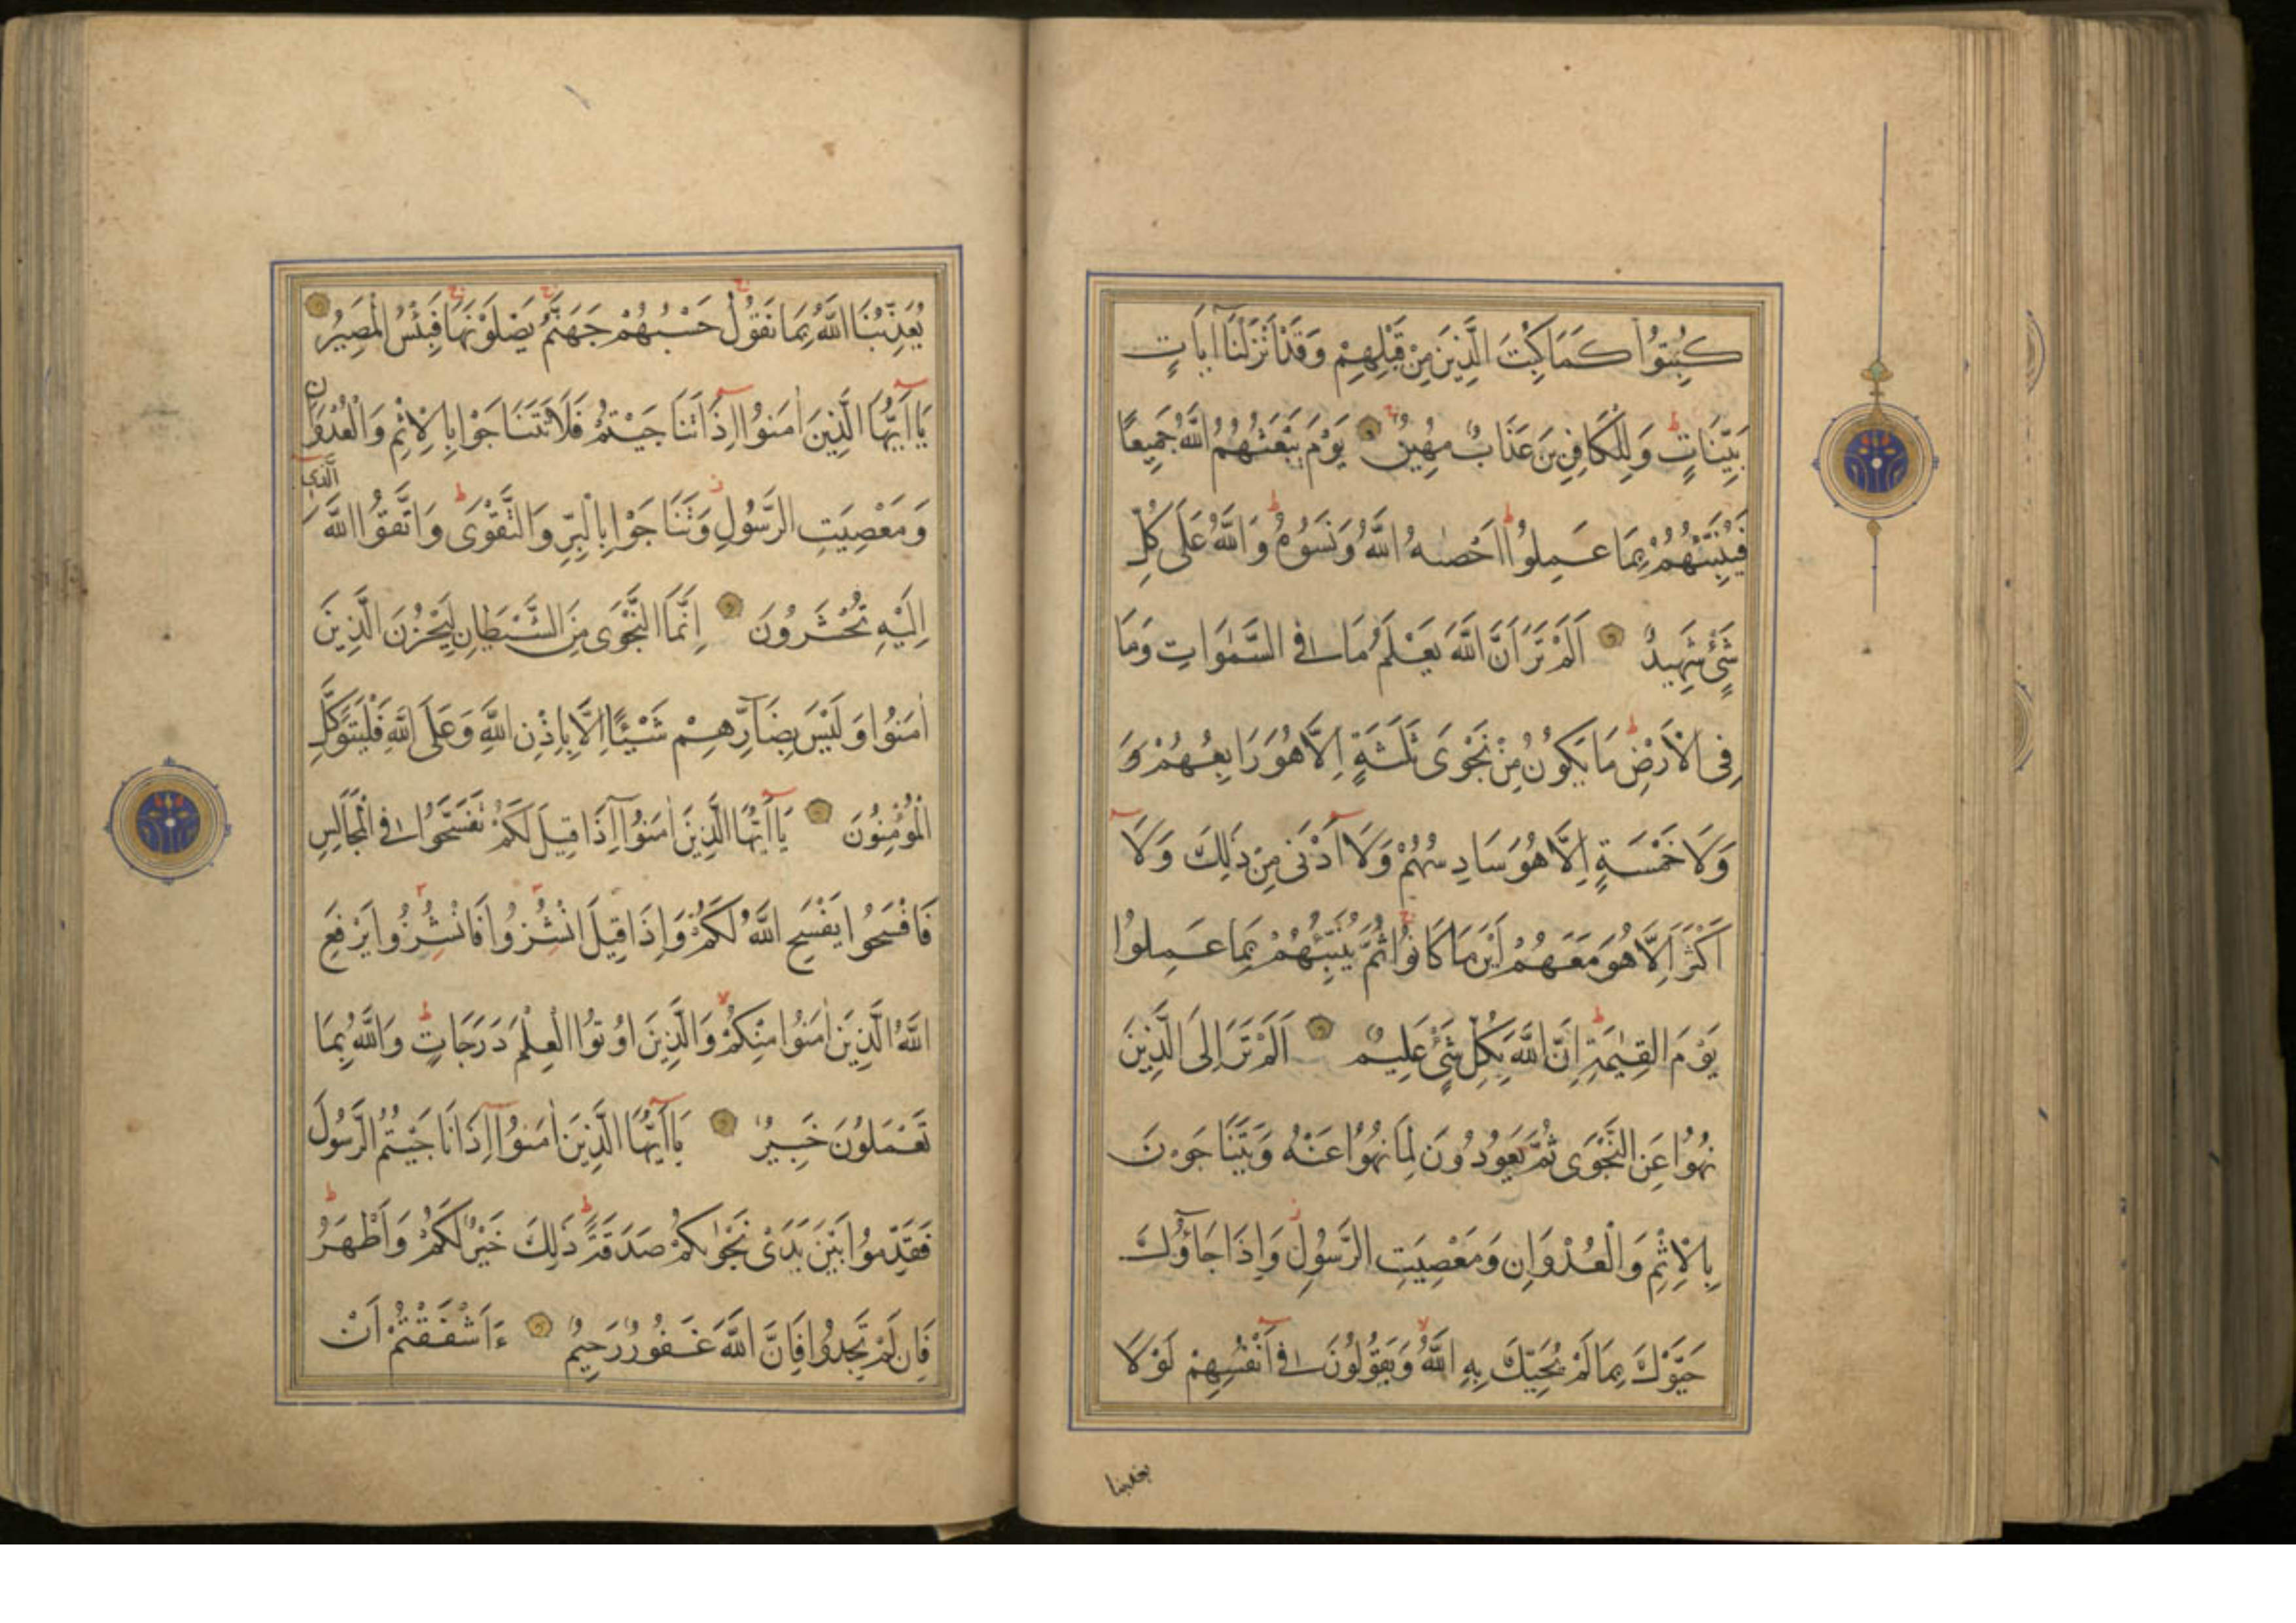 كُبِتُوا كَمَا كُبِتَ الَّذِينَ مِنْ قَبْلِهِمْ وَقَدْ اَنْزَلْنَا آيَاتٍ
بَيِّنَاتٍ ط وَلِلْكَافِرِينَ عَذَابٌ مُهِينٌ ج يَوْمَ يَبْعَثُهُمُ اللَّهُ جَمِيعًا
فَيُنَبِّئُهُمْ بِمَا عَمِلُوا ط اَحْصٰىهُ اللَّهُ وَنَسُوهُ ط وَاللَّهُ عَلَى كُلِّ
شَيْءٍ شَهِيدٌ اَلَمْ تَرَ اَنَّ اللَّهَ يَعْلَمُ مَا فِي السَّمٰوَاتِ وَمَا
فِي الْاَرْضِ ط مَا يَكُونُ مِنْ نَجْوَى ثَلٰثَةٍ اِلَّا هُوَ رَابِعُهُمْ وَ
وَلَا خَمْسَةٍ اِلَّا هُوَ سَادِسُهُمْ وَلَا اَدْنَى مِنْ ذٰلِكَ وَلَا
اَكْثَرَ اِلَّا هُوَ مَعَهُمْ اَيْنَ مَا كَانُوا ج ثُمَّ يُنَبِّئُهُمْ بِمَا عَمِلُوا
يَوْمَ الْقِيٰمَةِ ط اِنَّ اللَّهَ بِكُلِّ شَيْءٍ عَلِيمٌ اَلَمْ تَرَ اِلَى الَّذِينَ
نُهُوا عَنِ النَّجْوَى ثُمَّ يَعُودُونَ لِمَا نُهُوا عَنْهُ وَيَتَنَاجَوْنَ
بِالْاِثْمِ وَالْعُدْوَانِ وَمَعْصِيَتِ الرَّسُولِ ز وَاِذَا جَآؤُكَ
حَيَّوْكَ بِمَا لَمْ يُحَيِّكَ بِهِ اللَّهُ لا وَيَقُولُونَ فِي اَنْفُسِهِمْ لَوْلَا
يعذبنا
يُعَذِّبُنَا اللَّهُ بِمَا نَقُولُ ج حَسْبُهُمْ جَهَنَّمُ ج يَصْلَوْنَهَا ج فَبِئْسَ الْمَصِيرُ
يَا اَيُّهَا الَّذِينَ اٰمَنُوا اِذَا تَنَاجَيْتُمْ فَلَا تَتَنَاجَوْا بِالْاِثْمِ وَالْعُدْوَانِ
وَمَعْصِيَتِ الرَّسُولِ وَتَنَاجَوْا بِالْبِرِّ وَالتَّقْوَى ط وَاتَّقُوا اللَّهَ الَّذِي
اِلَيْهِ تُحْشَرُونَ اِنَّمَا النَّجْوَى مِنَ الشَّيْطَانِ لِيَحْزُنَ الَّذِينَ
اٰمَنُوا وَلَيْسَ بِضَآرِّهِمْ شَيْئًا اِلَّا بِاِذْنِ اللَّهِ وَعَلَى اللَّهِ فَلْيَتَوَكَّلِ
الْمُؤْمِنُونَ يَا اَيُّهَا الَّذِينَ اٰمَنُوا اِذَا قِيلَ لَكُمْ تَفَسَّحُوا فِي الْمَجَالِسِ
فَافْسَحُوا يَفْسَحِ اللَّهُ لَكُمْ وَاِذَا قِيلَ انْشُزُوا فَانْشُزُوا يَرْفَعِ
اللَّهُ الَّذِينَ اٰمَنُوا مِنْكُمْ لا وَالَّذِينَ اُوتُوا الْعِلْمَ دَرَجَاتٍ ط وَاللَّهُ بِمَا
تَعْمَلُونَ خَبِيرٌ يَا اَيُّهَا الَّذِينَ اٰمَنُوا اِذَا نَاجَيْتُمُ الرَّسُولَ
فَقَدِّمُوا بَيْنَ يَدَيْ نَجْوٰىكُمْ صَدَقَةً ط ذٰلِكَ خَيْرٌ لَكُمْ وَاَطْهَرُ ط
فَاِنْ لَمْ تَجِدُوا فَاِنَّ اللَّهَ غَفُورٌ رَحِيمٌ ءَاَشْفَقْتُمْ اَنْ